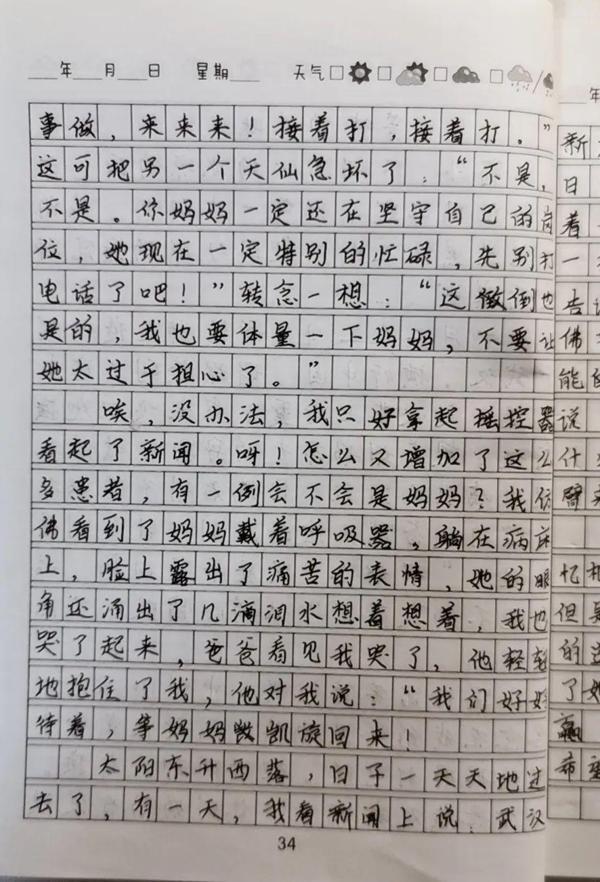 年 月 日 星期 天气
事做，来来来！接着打，接着打。”
这可把另一个天仙急坏了：“不是，
不是。你妈妈一定还在坚守自己的岗
位，她现在一定特别的忙碌，先别打
电话了吧！”转念一想：“这做倒也
是的，我也要体量一下妈妈，不要让
她太过于担心了。”
唉，没办法，我只好拿起摇控器
看起了新闻。呀！怎么又增加了这么
多患者，有一例会不会是妈妈？我仿
佛看到了妈妈戴着呼吸器，躺在病床
上，脸上露出了痛苦的表情，她的眼
角还涌出了几滴泪水想着想着，我也
哭了起来，爸爸看见我哭了，他轻轻
地抱住了我，他对我说：“我们好好
待着，等妈妈凯旋回来！
太阳东升西落，日子一天天地过
去了，有一天，我看新闻上说：武汉
34
年
新
日
着
一
告
佛
能的
说
什
臂
忆
但是
的
了她
赢
希望